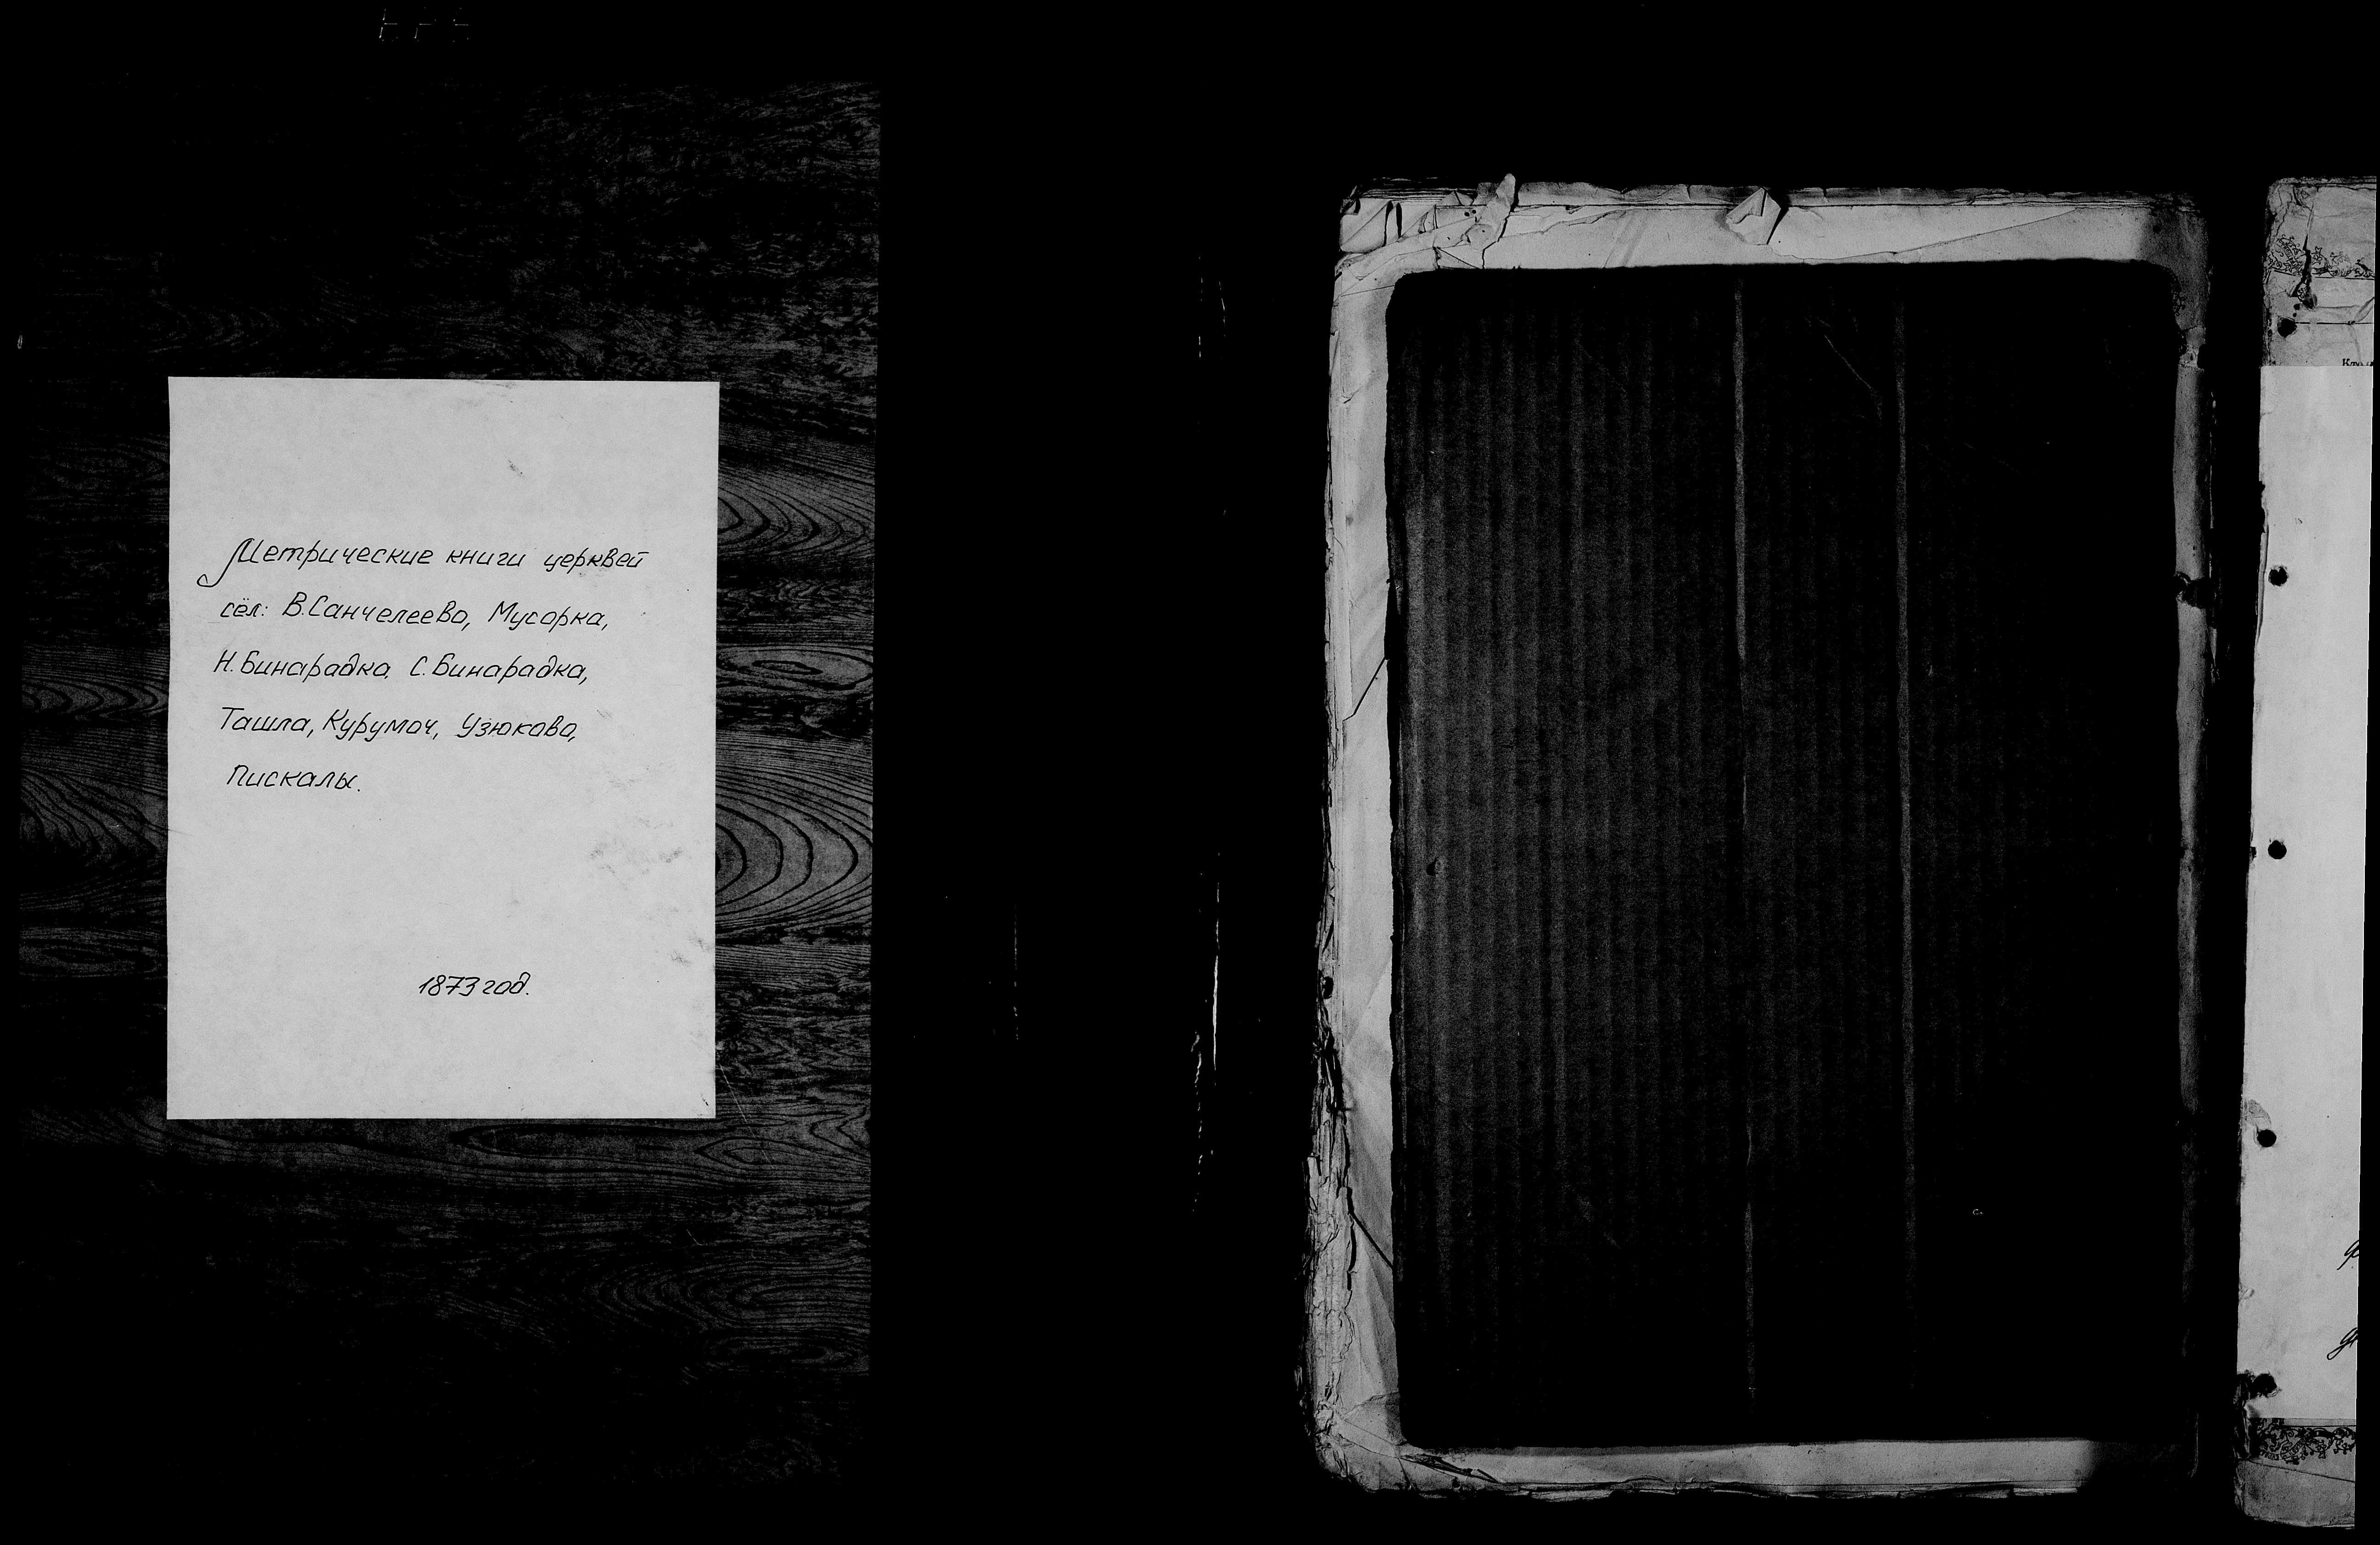 Метрические книги церквей
сёл: В.Санчелеево, Мусорка,
Н.Бинарадка, С.Бинарадка,
Ташла, Курумоч, Узюково,
Пискалы.
1873 год.